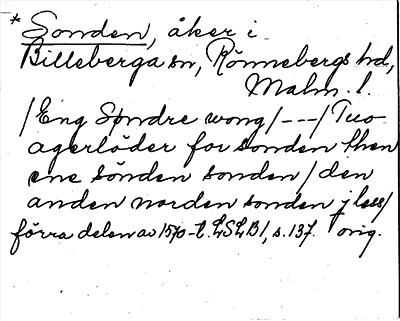 * Sonden, åker i
Billeberga sn, Rönnebergs hd,
Malm. l.
/Eng Søndre wong/---/Tuo
agerlöder for sonden then
ene sönden sonden/den
anden norden sonden j laes/
förra delen av 1570-t. LSLB1, s. 137. orig.